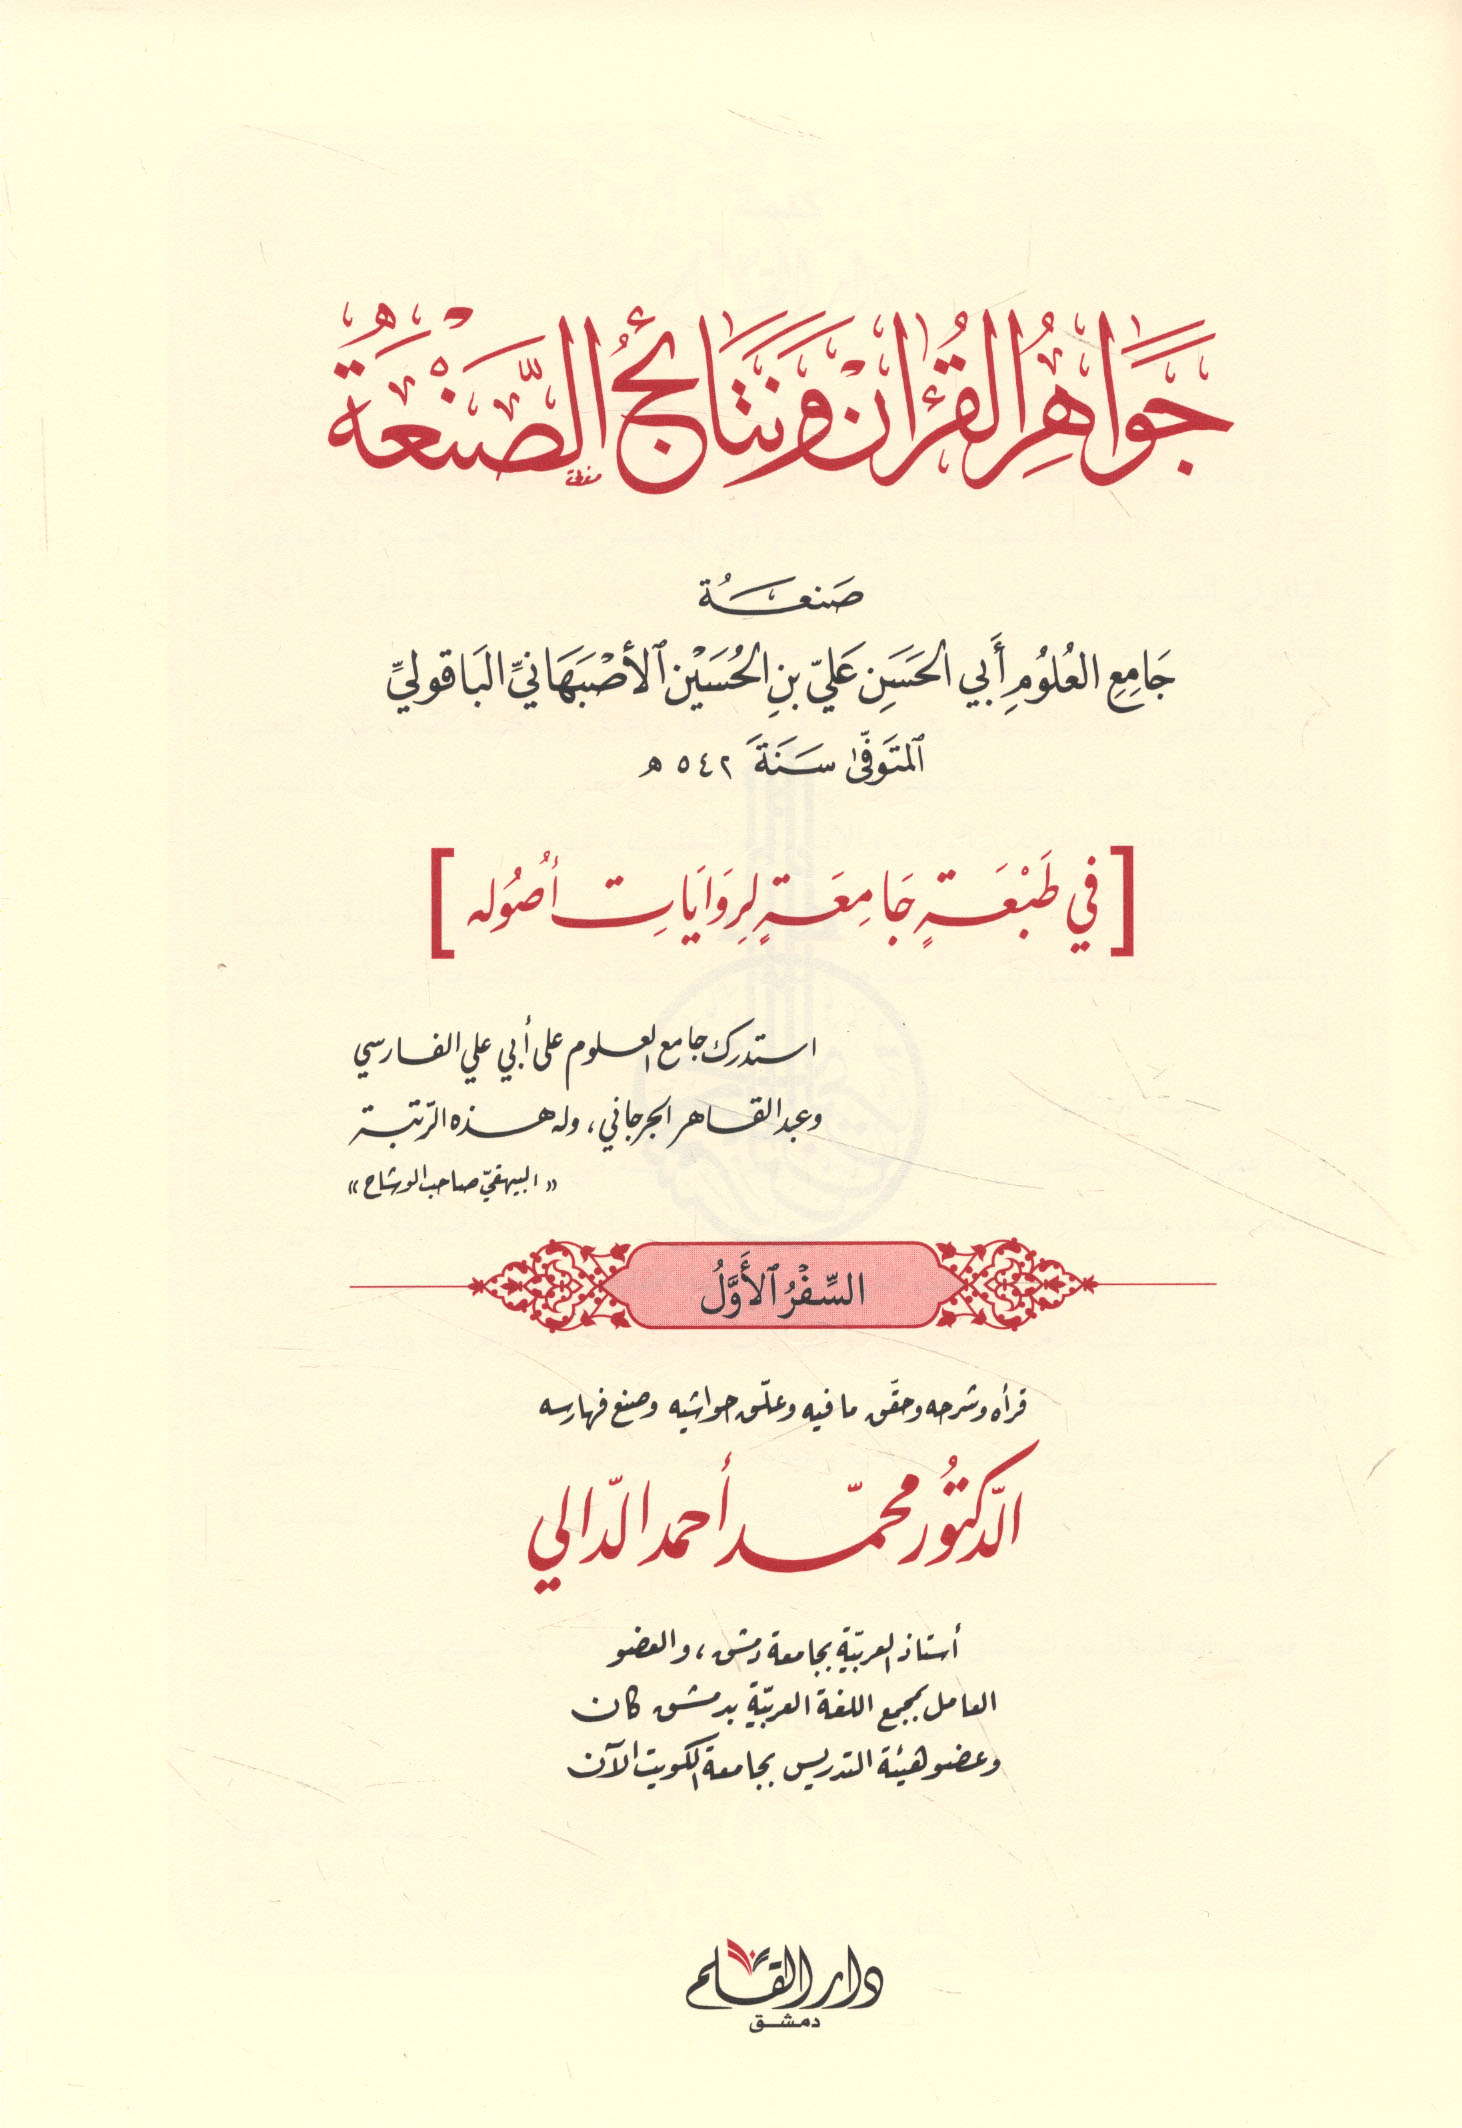 جَوَاهِرُ القُرْآنِ وَنَتَائِجُ الصَّنْعَةِ
صَنعَةُ
جَامِعِ العُلُومِ أَبي الحَسَنِ عَليّ بنِ الحُسَيْنِ ٱلأصْبَهَانيِّ البَاقوليِّ
ٱلمتَوَفّىٰ سَنَةَ ٥٤٢ ه
[في طَبْعَةٍ جَامِعَةٍ لِرِوَايَاتِ أصُوله]
استدرك جامع العلوم على أبي علي الفارسي
وعبد القاهر الجرجاني، وله هذه الرّتبة
«البيهقيّ صاحب الوشاح»
السِّفْرُ ٱلأَوَّلُ
قرأه وشرحه وحقّق ما فيه وعلّق حواشيه وصنع فهارسه
الدّكتُور محمّد أحمد الدّالي
أستاذ العربيّة بجامعة دمشق، والعضو
العامل بمجمع اللغة العربيّة بدمشق كان
وعضو هيئة التدريس بجامعة الكويت الآن
دار القلم
دمشق